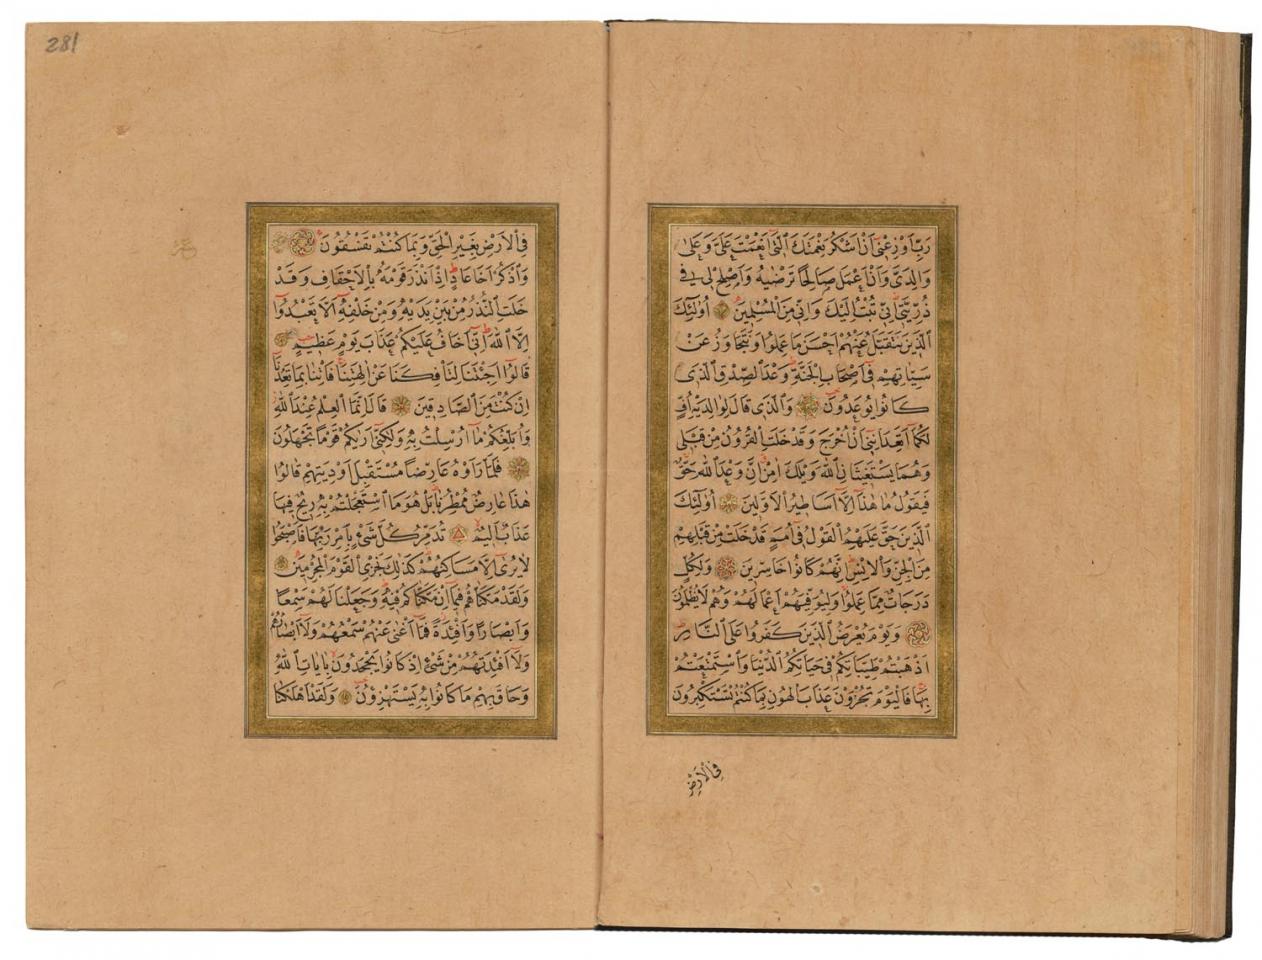 رَبِّ اَوْزِعْنٖى اَنْ اَشْكُرَ نِعْمَتَكَ الَّتٖى اَنْعَمْتَ عَلَىَّ وَعَلٰى
وَالِدَىَّ وَاَنْ اَعْمَلَ صَالِحًا تَرْضٰيهُ وَاَصْلِحْ لٖى فٖى
ذُرِّيَّتٖى اِنّٖى تُبْتُ اِلَيْكَ وَاِنّٖى مِنَ الْمُسْلِمٖينَ اُولٰئِكَ
الَّذٖينَ نَتَقَبَّلُ عَنْهُمْ اَحْسَنَ مَا عَمِلُوا وَنَتَجَاوَزُ عَنْ
سَيِّاٰتِهِمْ فٖى اَصْحَابِ الْجَنَّةِ وَعْدَ الصِّدْقِ الَّذٖى
كَانُوا يُوعَدُونَ وَالَّذٖى قَالَ لِوَالِدَيْهِ اُفٍّ
لَكُمَا اَتَعِدَانِنٖى اَنْ اُخْرَجَ وَقَدْ خَلَتِ الْقُرُونُ مِنْ قَبْلٖى
وَهُمَا يَسْتَغٖيثَانِ اللّٰهَ وَيْلَكَ اٰمِنْ اِنَّ وَعْدَ اللّٰهِ حَقٌّ
فَيَقُولُ مَا هٰذَا اِلَّا اَسَاطٖيرُ الْاَوَّلٖينَ اُولٰئِكَ
الَّذٖينَ حَقَّ عَلَيْهِمُ الْقَوْلُ فٖى اُمَمٍ قَدْ خَلَتْ مِنْ قَبْلِهِمْ
مِنَ الْجِنِّ وَالْاِنْسِ اِنَّهُمْ كَانُوا خَاسِرٖينَ وَلِكُلٍّ
دَرَجَاتٌ مِمَّا عَمِلُوا وَلِيُوَفِّيَهُمْ اَعْمَالَهُمْ وَهُمْ لَا يُظْلَمُونَ
وَيَوْمَ يُعْرَضُ الَّذٖينَ كَفَرُوا عَلَى النَّارِ
اَذْهَبْتُمْ طَيِّبَاتِكُمْ فٖى حَيَاتِكُمُ الدُّنْيَا وَاسْتَمْتَعْتُمْ
بِهَا فَالْيَوْمَ تُجْزَوْنَ عَذَابَ الْهُونِ بِمَا كُنْتُمْ تَسْتَكْبِرُونَ
فِى الْاَرْضِ
281
فِى الْاَرْضِ بِغَيْرِ الْحَقِّ وَبِمَا كُنْتُمْ تَفْسُقُونَ
وَاذْكُرْ اَخَا عَادٍ اِذْ اَنْذَرَ قَوْمَهُ بِالْاَحْقَافِ وَقَدْ
خَلَتِ النُّذُرُ مِنْ بَيْنِ يَدَيْهِ وَمِنْ خَلْفِهٖ اَلَّا تَعْبُدُوا
اِلَّا اللّٰهَ اِنّٖى اَخَافُ عَلَيْكُمْ عَذَابَ يَوْمٍ عَظٖيمٍ
قَالُوا اَجِئْتَنَا لِتَاْفِكَنَا عَنْ اٰلِهَتِنَا فَاْتِنَا بِمَا تَعِدُنَا
اِنْ كُنْتَ مِنَ الصَّادِقٖينَ قَالَ اِنَّمَا الْعِلْمُ عِنْدَ اللّٰهِ
وَاُبَلِّغُكُمْ مَا اُرْسِلْتُ بِهٖ وَلٰكِنّٖى اَرٰيكُمْ قَوْمًا تَجْهَلُونَ
فَلَمَّا رَاَوْهُ عَارِضًا مُسْتَقْبِلَ اَوْدِيَتِهِمْ قَالُوا
هٰذَا عَارِضٌ مُمْطِرُنَا بَلْ هُوَ مَا اسْتَعْجَلْتُمْ بِهٖ رٖيحٌ فٖيهَا
عَذَابٌ اَلٖيمٌ تُدَمِّرُ كُلَّ شَىْءٍ بِاَمْرِ رَبِّهَا فَاَصْبَحُوا
لَا يُرٰى اِلَّا مَسَاكِنُهُمْ كَذٰلِكَ نَجْزِى الْقَوْمَ الْمُجْرِمٖينَ
وَلَقَدْ مَكَّنَّاهُمْ فٖيمَا اِنْ مَكَّنَّاكُمْ فٖيهِ وَجَعَلْنَا لَهُمْ سَمْعًا
وَاَبْصَارًا وَاَفْئِدَةً فَمَا اَغْنٰى عَنْهُمْ سَمْعُهُمْ وَلَا اَبْصَارُهُمْ
وَلَا اَفْئِدَتُهُمْ مِنْ شَىْءٍ اِذْ كَانُوا يَجْحَدُونَ بِاٰيَاتِ اللّٰهِ
وَحَاقَ بِهِمْ مَا كَانُوا بِهٖ يَسْتَهْزِؤُنَ وَلَقَدْ اَهْلَكْنَا